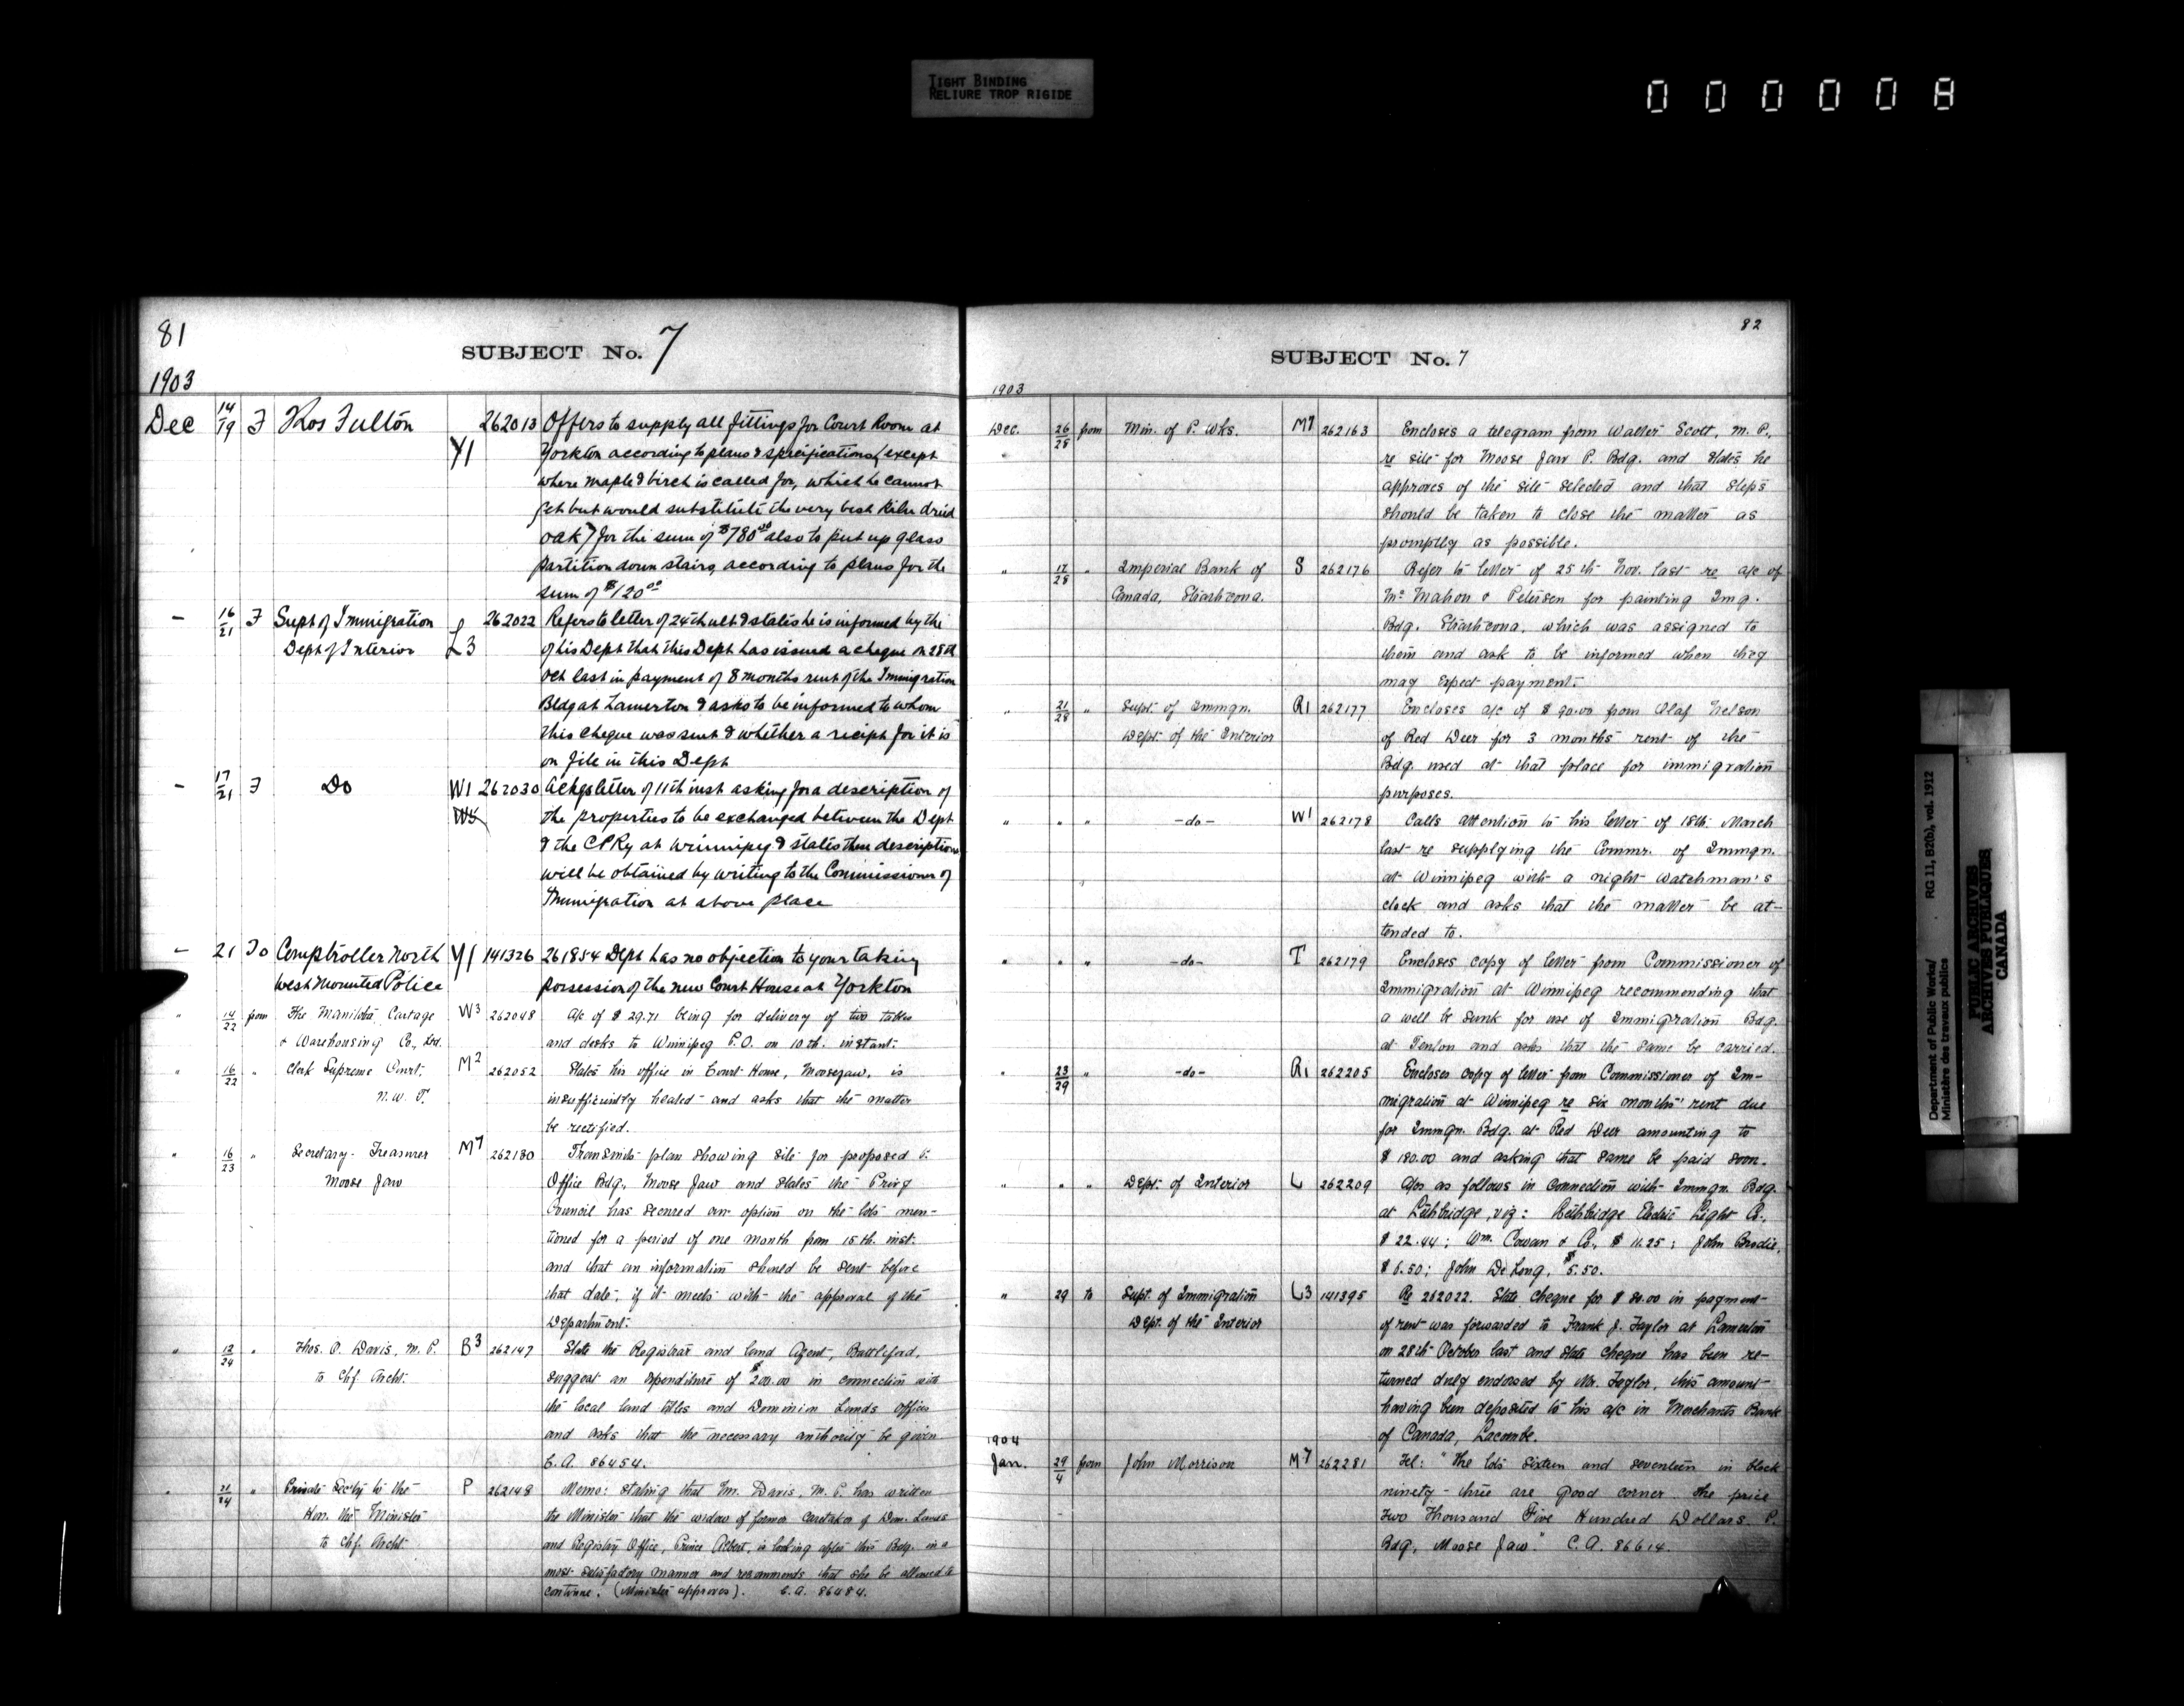 TIGHT BINDING
RELIURE TROP RIGIDE
000008
81
SUBJECT No. 7
1903
Dec 14/19 F Thos Fulton Y1 262013 Offers to supply all fittings for Court Room at
Yorkton according to plans & specifications (except
where maple & birch is called for, which he cannot
get but would substitute the very best kiln dried
oak) for the sum of $780.00 also to put up glass
partition down stairs, according to plans for the
sum of $120.00
— 16/21 F Supt of Immigration L3 262022 Refers to letter of 24th ult & states he is informed by the
Dept of Interior of his Dept that this Dept has issued a cheque on 28th
Oct last in payment of 8 months rent of the Immigration
Bldg at Lamerton & asks to be informed to whom
this cheque was sent & whether a recipt for it is
on file in this Dept
— 17/21 F Do W1 262030 Ackgs letter of 11th inst asking for a description of
W5 the properties to be exchanged between the Dept
& the CPRy at Winnipeg & states these descriptions
will be obtained by writing to the Commissioner of
Immigration at above place
— 21 To Comptroller North Y1 141326 261854 Dept has no objection to your taking
West Mounted Police possession of the new Court House at Yorkton
" 14/22 from The Manitoba Cartage W3 262048 A/c of $ 29.71 being for delivery of two tables
& Warehousing Co., Ltd. and desks to Winnipeg P.O. on 10th. instant.
" 16/22 " Clerk Supreme Court, M2 262052 States his office in Court House, Moosejaw, is
N. W. T. insufficiently heated and asks that the matter
be rectified.
" 16/23 " Secretary-Treasurer M7 262130 Transmits plan showing site for proposed P.
Moose Jaw Office Bdg., Moose Jaw and states the Privy
Council has secured an option on the lots men-
tioned for a period of one month from 15th. inst.
and that an information should be sent before
that date, if it meets with the approval of the
Department.
" 12/24 " Thos. O. Davis, M. P. B3 262147 State the Registrar and land Agent, Battleford,
to Chf. Archt. suggest an expenditure of $200.00 in connection with
the local land titles and Dominion Lands offices
and asks that the necessary authority be given.
C.A. 86454.
" 21/24 " Private Secty to the P 262148 Memo: stating that Mr. Davis, M. P. has written
Hon. the Minister the Minister that the widow of former caretaker of Dom. Lands
to Chf. Archt. and Registry Office, Prince Albert, is looking after this Bdg. in a
most satisfactory manner and recommends that she be allowed to
continue. (Minister approves). C.A. 86484.
82
SUBJECT No. 7
1903
Dec. 26/28 from Min. of P. Wks. M7 262163 Encloses a telegram from Walter Scott, M. P.,
re site for Moose Jaw P. Bdg. and states he
approves of the site selected and that steps
should be taken to close the matter as
promptly as possible.
" 17/28 " Imperial Bank of S 262176 Refer to letter of 25th Nov. last re a/c of
Canada, Strathcona. McMahon & Petersen for painting Img.
Bdg. Strathcona, which was assigned to
them and ask to be informed when they
may expect payment.
" 21/28 " Supt. of Immgn. R1 262177 Encloses a/c of $ 90.00 from Olaf Nelson
Dept. of the Interior of Red Deer for 3 months' rent of the
Bdg. used at that place for immigration
purposes.
" " " -do- W1 262178 Calls attention to his letter of 18th March
last re supplying the Commr. of Immgn.
at Winnipeg with a night watchman's
clock and asks that the matter be at-
tended to.
" " " -do- T 262179 Encloses copy of letter from Commissioner of
Immigration at Winnipeg recommending that
a well be sunk for use of Immigration Bdg.
at and asks that the same be carried.
" 23/29 " -do- R1 262205 Encloses copy of letter from Commissioner of Im-
migration at Winnipeg re six months' rent due
for Immgn. Bdg. at Red Deer amounting to
$ 180.00 and asking that same be paid soon.
" " " Dept. of Interior L 262209 A/cs as follows in connection with Immgn. Bdg.
at Lethbridge, viz: Lethbridge Electric Light Co.,
$ 22.44; Wm. Cowan & Co., $ 11.25; John Brodie,
$ 6.50; John DeLong, $5.50.
" 29 to Supt. of Immigration L3 141395 Re 262022. State cheque for $ 80.00 in payment
Dept. of the Interior of rent was forwarded to Frank J. Taylor at Lamerton
on 28th October last and state cheque has been re-
turned duly endorsed by Mr. Taylor, this amount
having been deposited to his a/c in Merchants Bank
of Canada, Lacombe.
1904
Jan. 29/4 from John Morrison M7 262281 Tel: "The lots sixteen and seventeen in block
ninety-three are good corner. The price
Two Thousand Five Hundred Dollars. P.
Bdg., Moose Jaw." C.A. 86614.
Department of Public Works/ RG 11, B2(b), vol. 1912
Ministère des travaux publics
PUBLIC ARCHIVES
ARCHIVES PUBLIQUES
CANADA